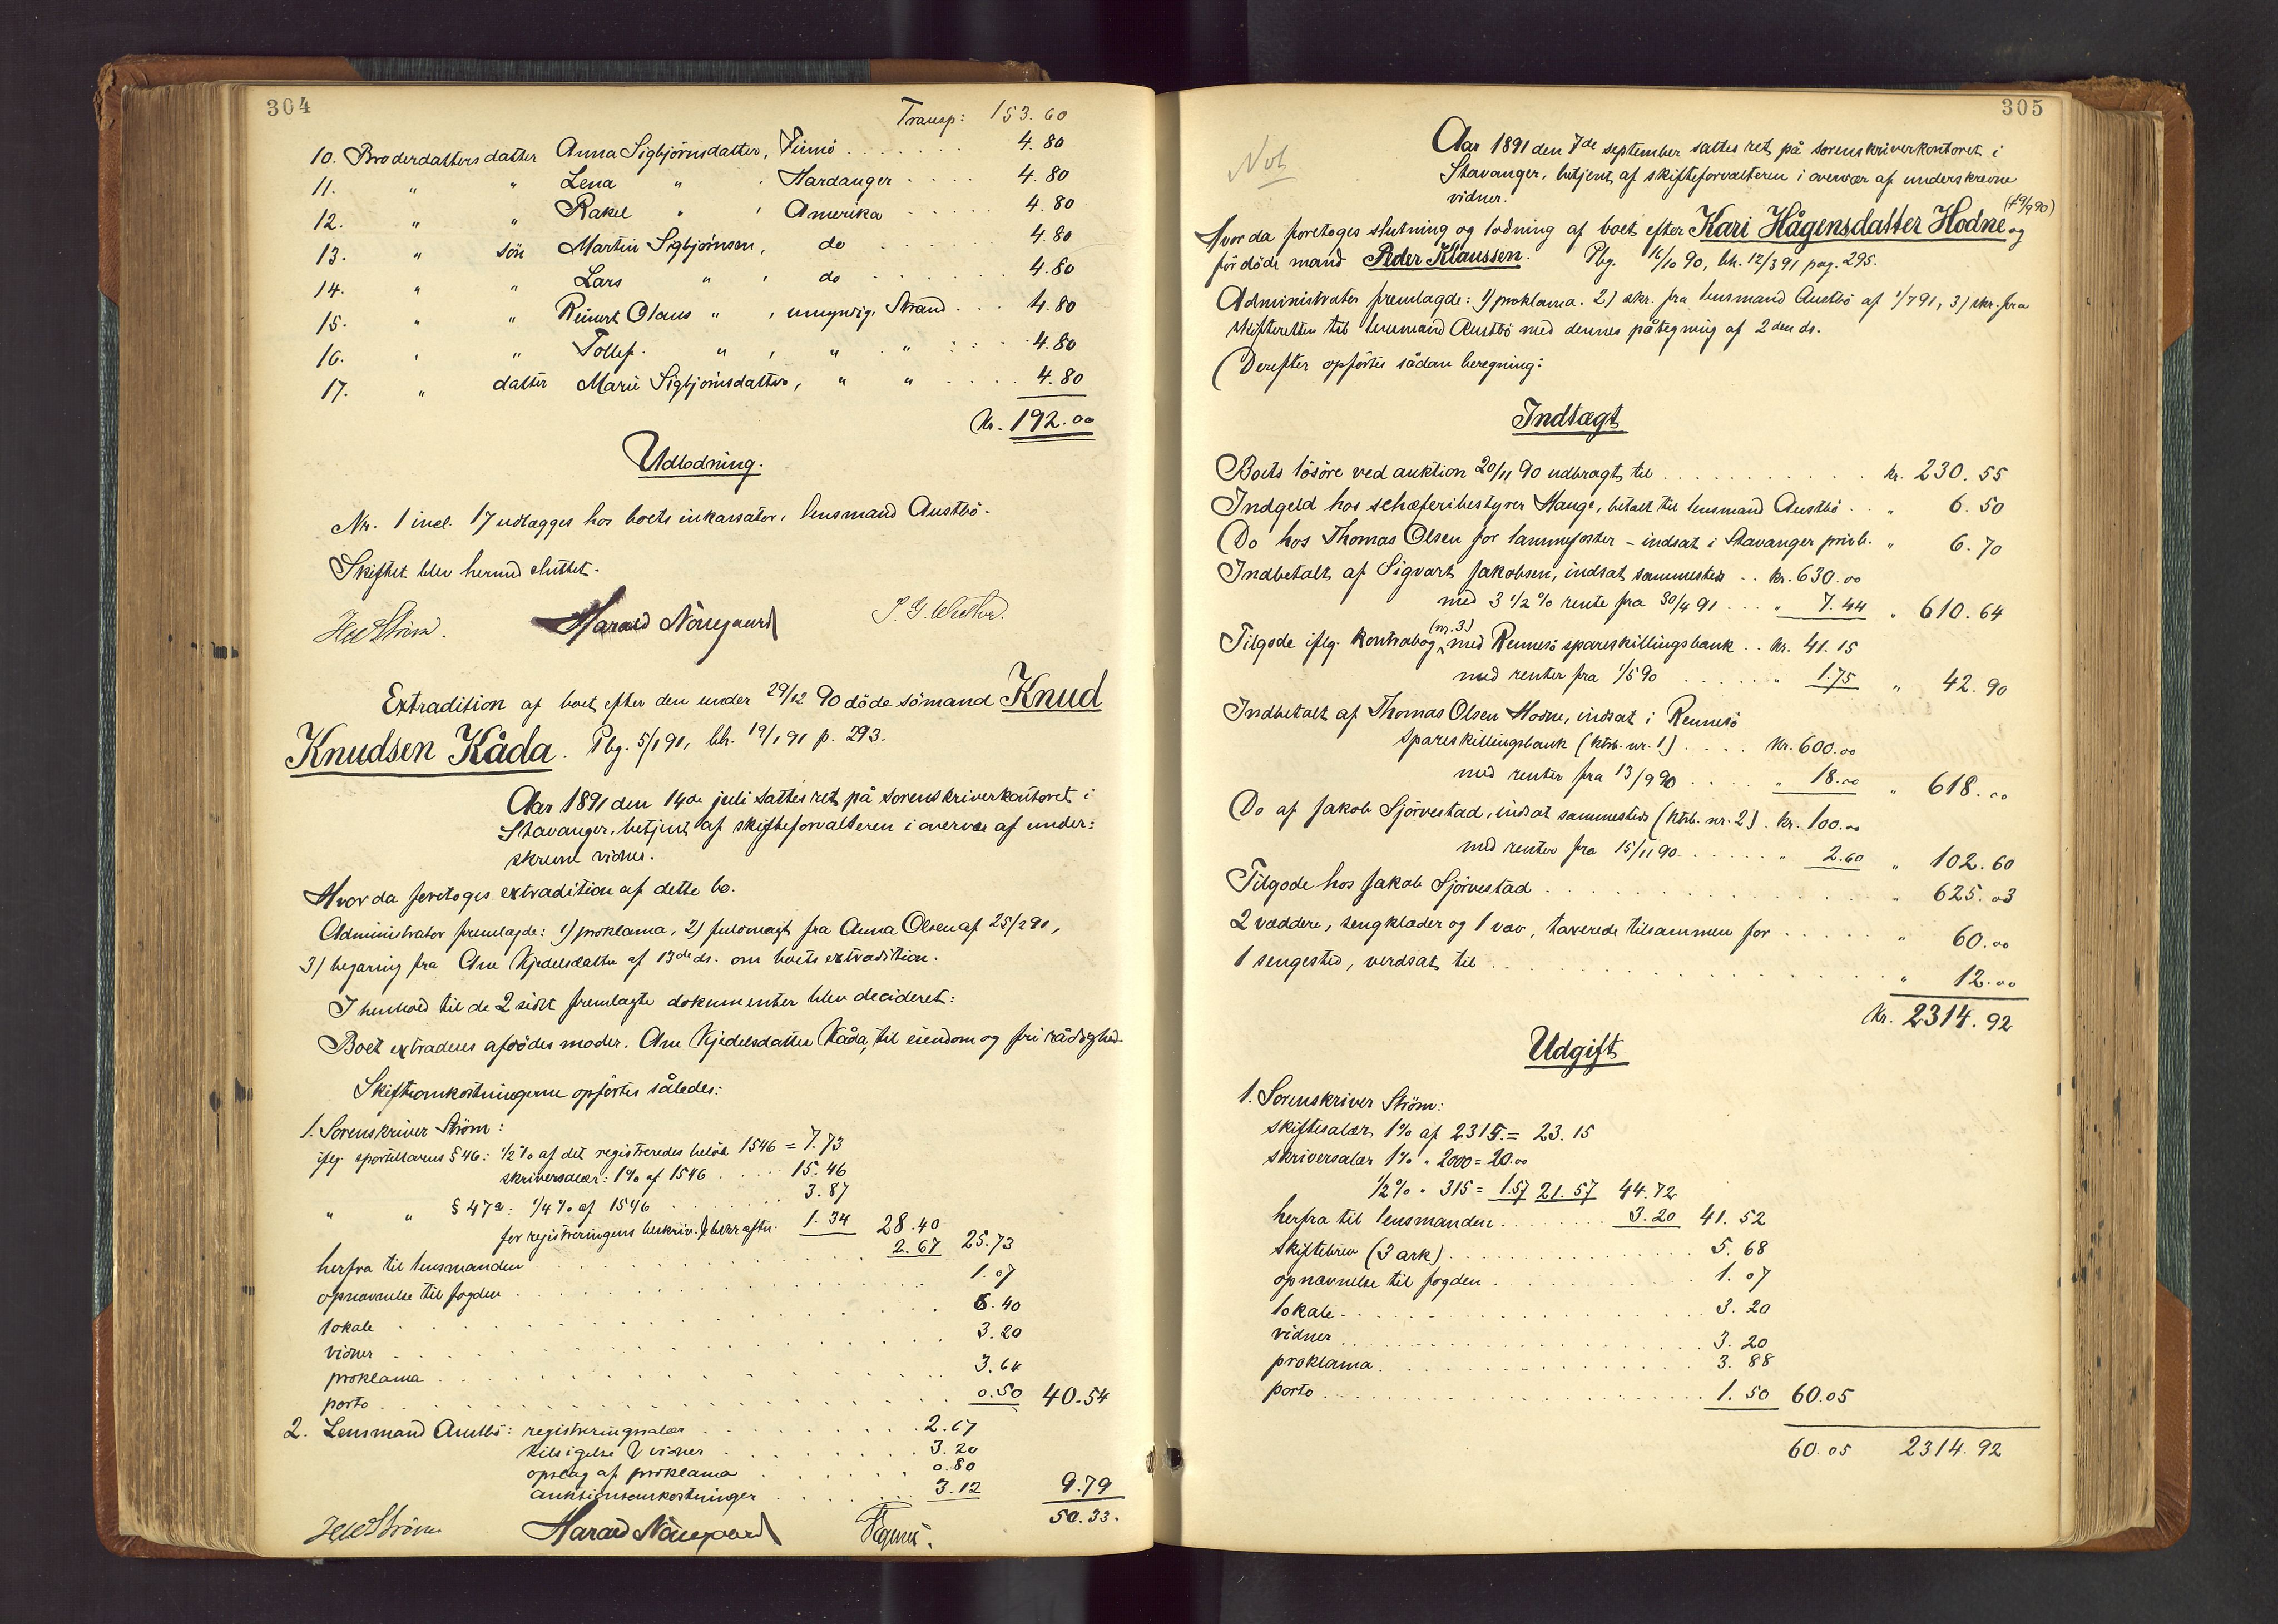 304
Transp: 153.60
10. Broderdatters datter Anna Sigbjörnsdatter, Finnö . . . . . . 4.80
11. " " Lena " , Hardanger . . . . 4.80
12. " " Rakel " , Amerika . . . . . 4.80
13. " sön Martin Sigbjörnsen, do . . . . . . 4.80
14. " " Lars " , do . . . . . . 4.80
15. " " Reinert Olaus " , umyndig, Strand . . . 4.80
16. " " Tollef " , " " . . . . 4.80
17. " datter Marie Sigbjörnsdatter, " " . . . . 4.80
Kr. 192.00
Udlodning.
Nr. 1 incl. 17 udlægges hos boets inkassator, lensmand Austbö.
Skiftet blev hermed sluttet.
Harald Nörregaard
Extradition af boet efter den under 29/12 90 döde sömand Knud
Knudsen Kåda. Pbg. 5/1 91, bh. 19/1 91 p. 293.
Aar 1891 den 14de juli sattes ret på sorenskriverkontoret i
Stavanger, betjent af skifteforvalteren i overvær af under=
skrevne vidner.
Hvor da foretoges extradition af dette bo.
Administrator fremlagde: 1) proklama, 2) fuldmagt fra Anna Olsen af 25/2 91,
3) begæring fra Ane Kjedelsdatter af 13de ds. om boets extradition.
I henhold til de 2 sidst fremlagte dokumenter blev decideret:
Boet extraderes afdödes moder, Ane Kjedelsdatter Kåda, til eiendom og fri rådighed
Skifteomkostningerne opförtes således:
1. Sorenskriver Ström:
iflg. sportellovens § 46: 1/2 % af det registreredes belöb 1546 = 7.73
skriversalær: 1% af 1546 . . . . 15.46
" " § 47a: 1/4 % af 1546 . . . . . . 3.87
for registreringens beskriv. & bekræfte. 1.34 28.40
herfra til lensmanden . . . . . . 2.67 25.73
opnævnelse til fogden . . . . . . 1.07
lokale . . . . . . 6.40
vidner . . . . . . 3.20
proklama . . . . . . 3.64
porto . . . . . . 0.50 40.54
2. Lensmand Austbö: registreringssalær . . . . . . 2.67
tilsigelse 2 vidner . . . . . . 3.20
opslag af proklama . . . . . . 0.80
auktionsomkostninger . . . . . . 3.12 9.79
50.33.
Harald Nörregaard
305
Not
Aar 1891 den 7de september sattes ret på sorenskriverkontoret i
Stavanger, betjent af skifteforvalteren i overvær af underskrevne
vidner.
Hvor da foretoges slutning og lodning af boet efter Kari Hågensdatter Hodne (†9/9 90) og
för döde mand Peder Klaussen. Pbg. 16/10 90, bh. 12/3 91 pag. 295.
Administrator fremlagde: 1) proklama. 2) skr. fra lensmand Austbö af 1/7 91, 3) skr. fra
skifteretten til lensmand Austbö med dennes påtegning af 2den ds.
Derefter opförtes sådan beregning:
Indtægt
Boets lösöre ved auktion 20/11 90 udbragt til . . . . . . kr. 230.55
Indgeld hos schæferibestyrer Hauge, betalt til lensmand Austbö . . " 6.50
Do hos Thomas Olsen for lammefoster – indsat i Stavanger privb. " 6.70
Indbetalt af Sigvart Jakobsen, indsat sammesteds . . kr. 630.00
med 3 1/2 % rente fra 30/4 91 . . . " 7.44 " 610.64
Tilgode iflg. kontrabog (nr. 3) med Rennesö spareskillingsbank . . kr. 41.15
med renter fra 1/5 90 . . . . . . " 1.75 " 42.90
Indbetalt af Thomas Olsen Hodne, indsat i Rennesö
spareskillingsbank (ktrb. nr. 1) . . . . kr. 600.00
med renter fra 13/9 90 . . . . " 18.00 " 618.00
Do af Jakob Sjörvestad, indsat sammesteds (ktrb. nr. 2) . kr. 100.00
med renter fra 15/11 90 . . . . . . " 2.60 " 102.60
Tilgode hos Jakob Sjörvestad . . . . . . " 625.03
2 væddere, sengklæder og 1 væv, taxerede tilsammen for . . . . . " 60.00
1 sengested, verdsat til . . . . . . " 12.00
Kr. 2314.92
Udgift
1. Sorenskriver Ström:
skiftesalær 1% af 2315. = 23.15
skriversalær 1% " 2000 = 20.00
1/2 % " 315 = 1.57 21.57 44.72
herfra til lensmanden . . . . . . 3.20 41.52
skiftebrev (3 ark) . . . . . . 5.68
opnævnelse til fogden . . . . . . 1.07
lokale . . . . . . 3.20
vidner . . . . . . 3.20
proklama . . . . . . 3.88
porto . . . . . . 1.50 60.05
60.05 2314.92